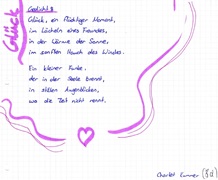 Glück
Gedicht 8
Glück, ein flüchtiger Moment,
im Lächeln eines Freundes,
in der Wärme der Sonne,
im sanften Hauch des Windes.
Ein kleiner Funke,
der in der Seele brennt,
in stillen Augenblicken,
wo die Zeit nicht rennt.
Charlet